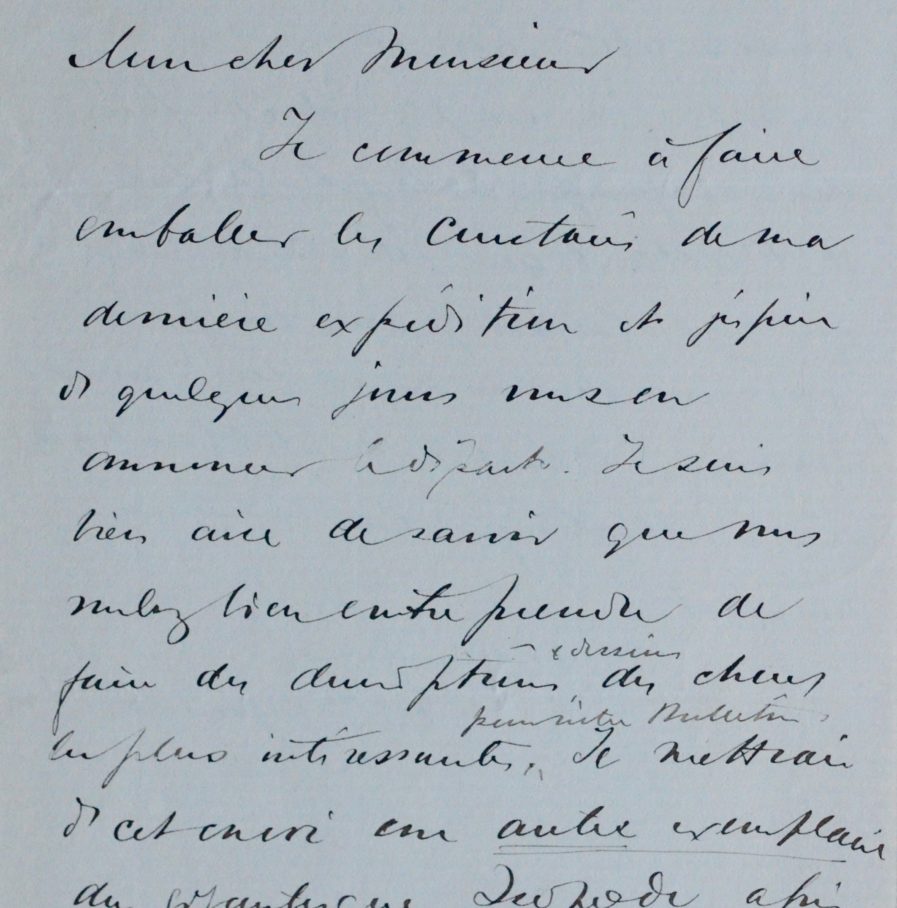 Mon cher Monsieur
Je commence à faire
emballer les Crustacés de ma
dernière expédition et j'espère
d quelques jours vous en
annoncer le départ. Je suis
bien aise de savoir que vous
voulez bien entreprendre de
& dessins
faire des descriptions des choses
pour notre Bulletin
les plus intéressantes. Je mettrai
d cet envoi un autre exemplaire
du gigantesque Isopode afin